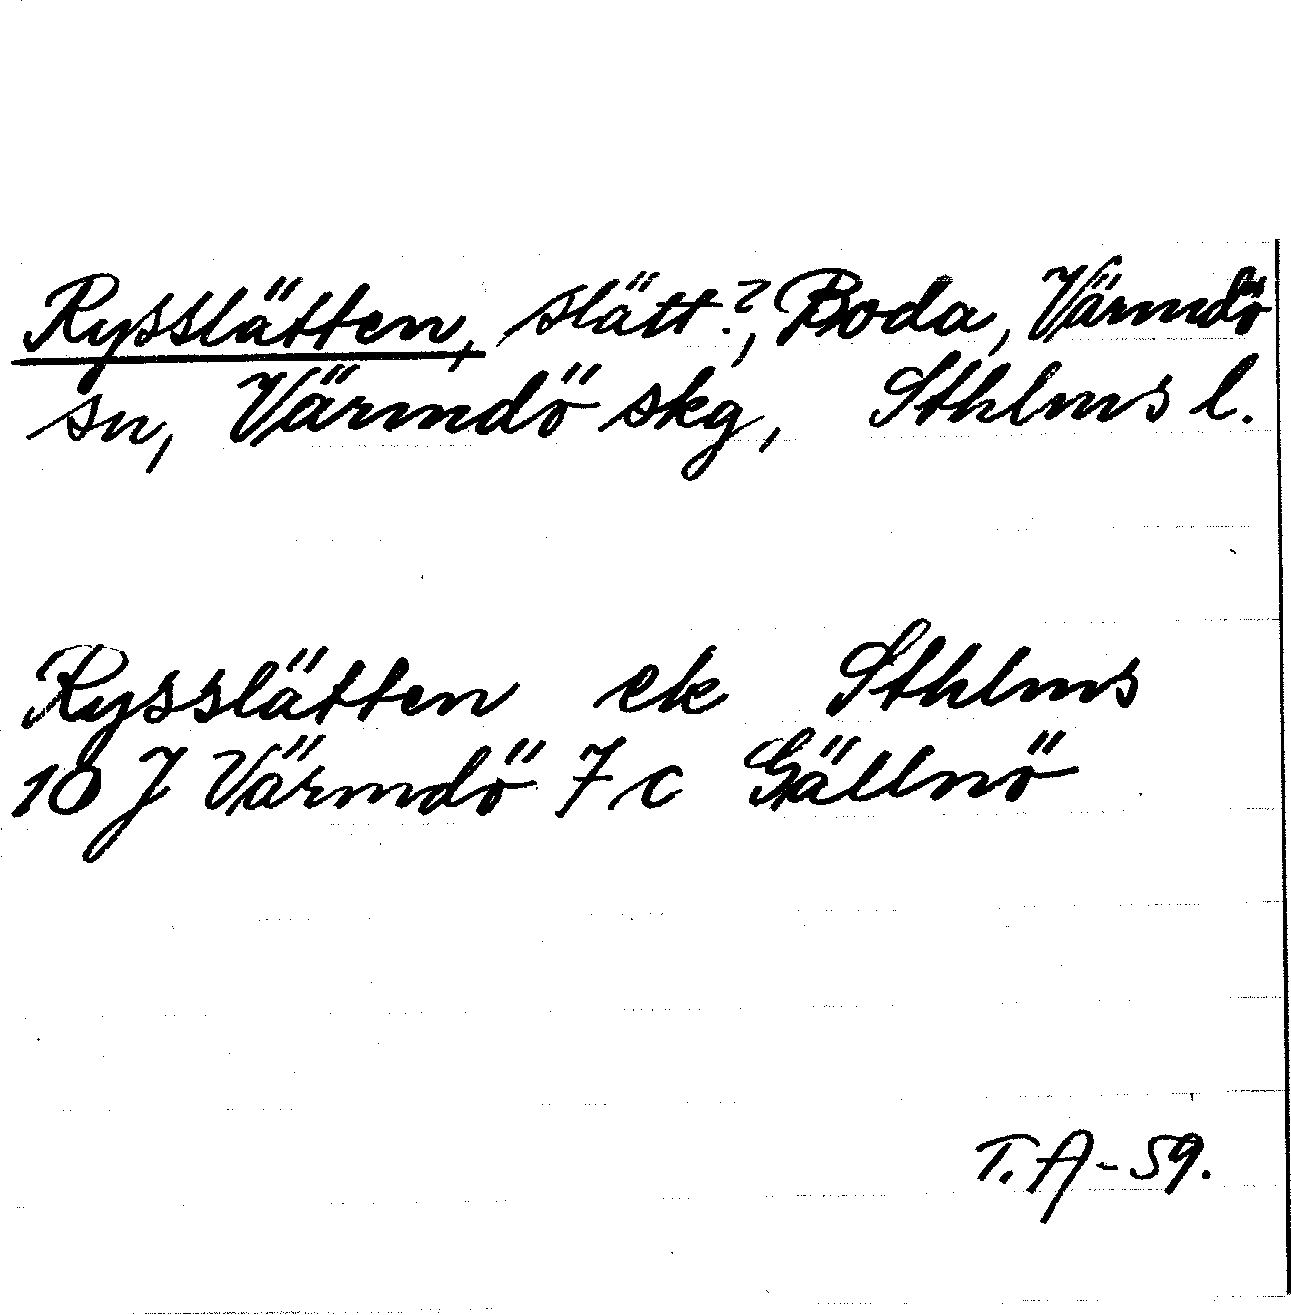 Rysslätten, slätt?, Boda, Värmdö
sn, Värmdö skg, Sthlms l.
Rysslätten ek Sthlms
10 J Värmdö 7 c Gällnö
T. A - 59.